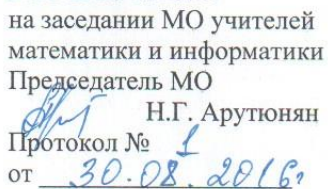 на заседании МО учителей
математики и информатики
Председатель МО
Н.Г. Арутюнян
Протокол № 1
от 30.08.2016г